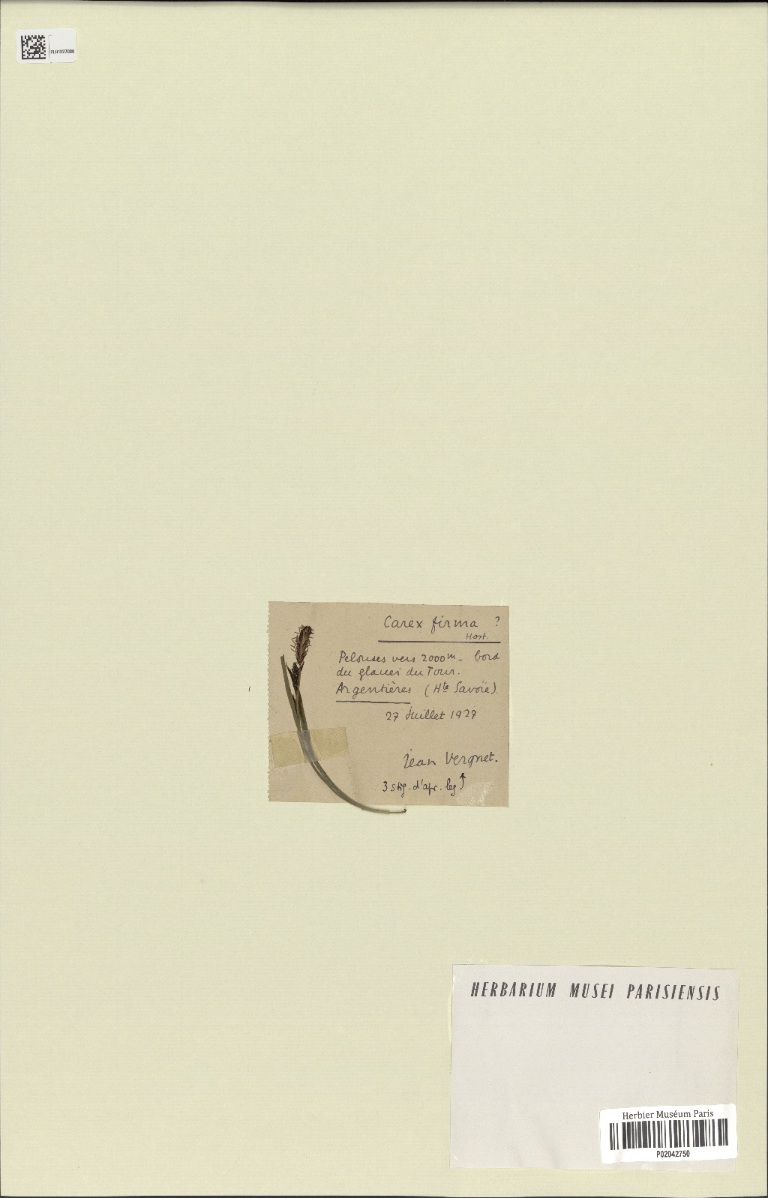 Carex firma ?
Host.
Pelouses vers 2000m - bord
du glacier du Tour.
Argentières (Hte Savoie).
27 Juillet 1927
Jean Vergnet.
3 stig. d'apr. leg
HERBARIUM MUSEI PARISIENSIS
Herbier Muséum Paris
P02042750